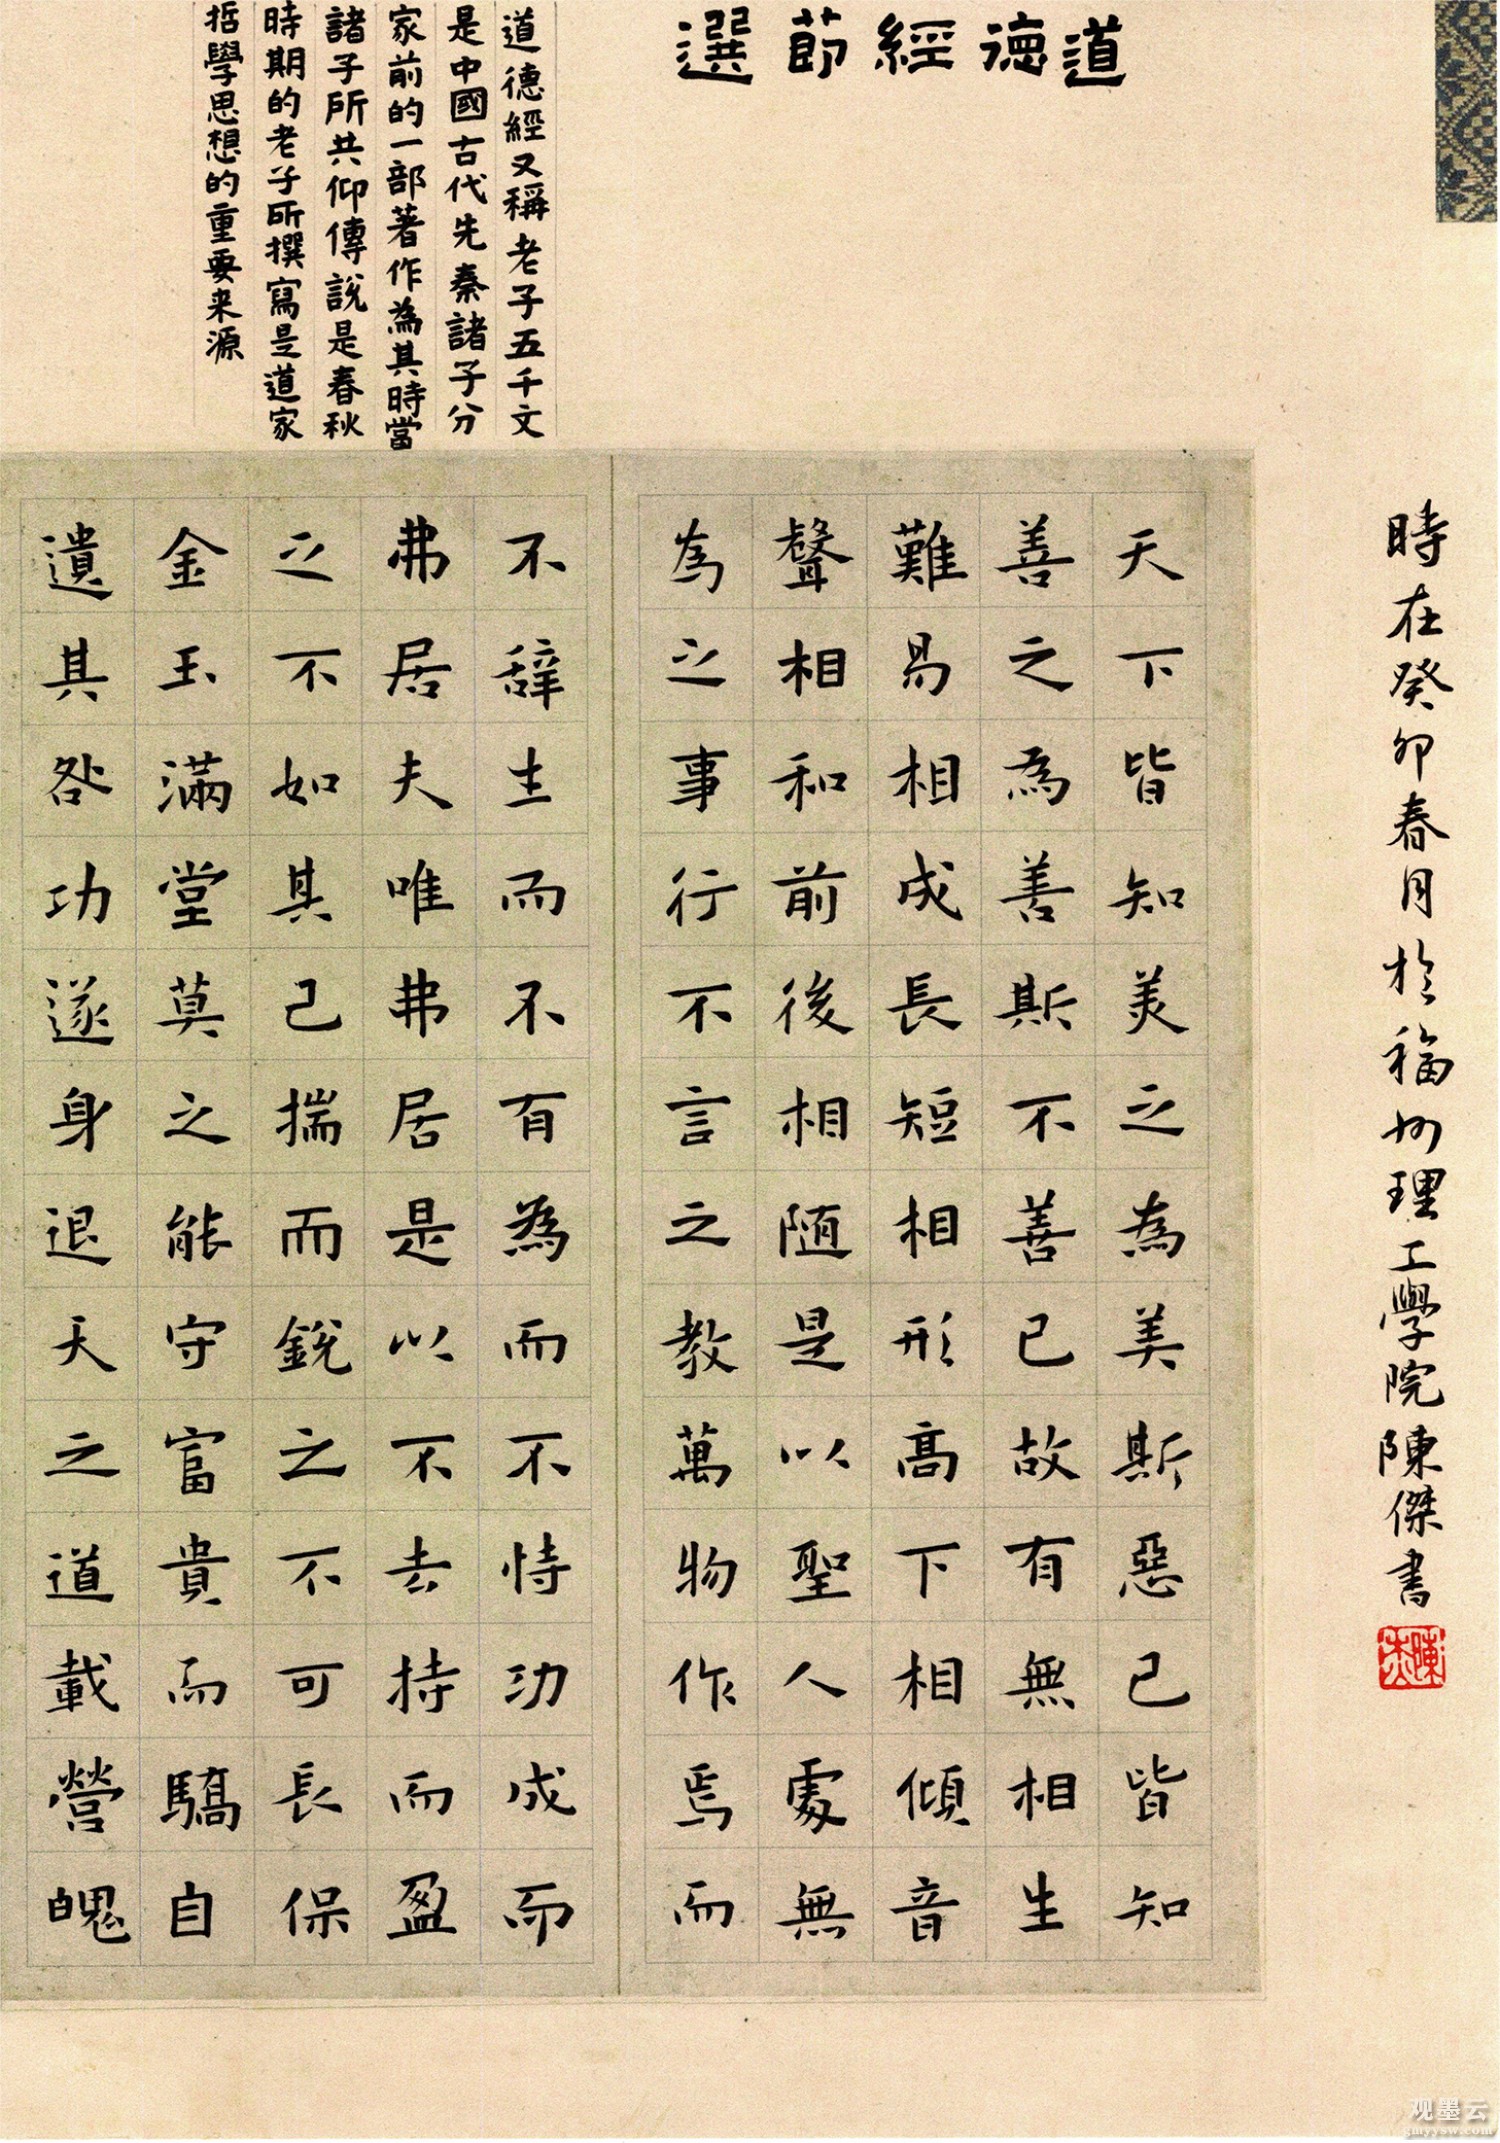 道德經節選
道德經又稱老子五千文
是中國古代先秦諸子分
家前的一部著作為其時當
諸子所共仰傳説是春秋
時期的老子所撰寫是道家
哲學思想的重要来源
天下皆知美之為美斯惡已皆知
善之為善斯不善已故有無相生
難易相成長短相形高下相傾音
聲相和前後相随是以聖人處無
為之事行不言之教萬物作焉而
不辭生而不有為而不恃功成而
弗居夫唯弗居是以不去持而盈
之不如其己揣而鋭之不可長保
金玉滿堂莫之能守富貴而驕自
遺其咎功遂身退天之道載營魄
時在癸卯春月於福州理工學院陳傑書
陳杰
观墨云
gmyysw.com